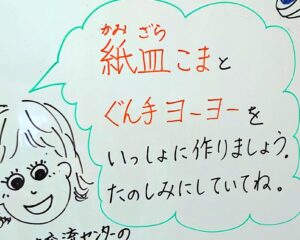 かみ ざら
紙皿こまと
ぐん手ヨーヨーを
いっしょに作りましょう。
たのしみにしていてね。
流センターの